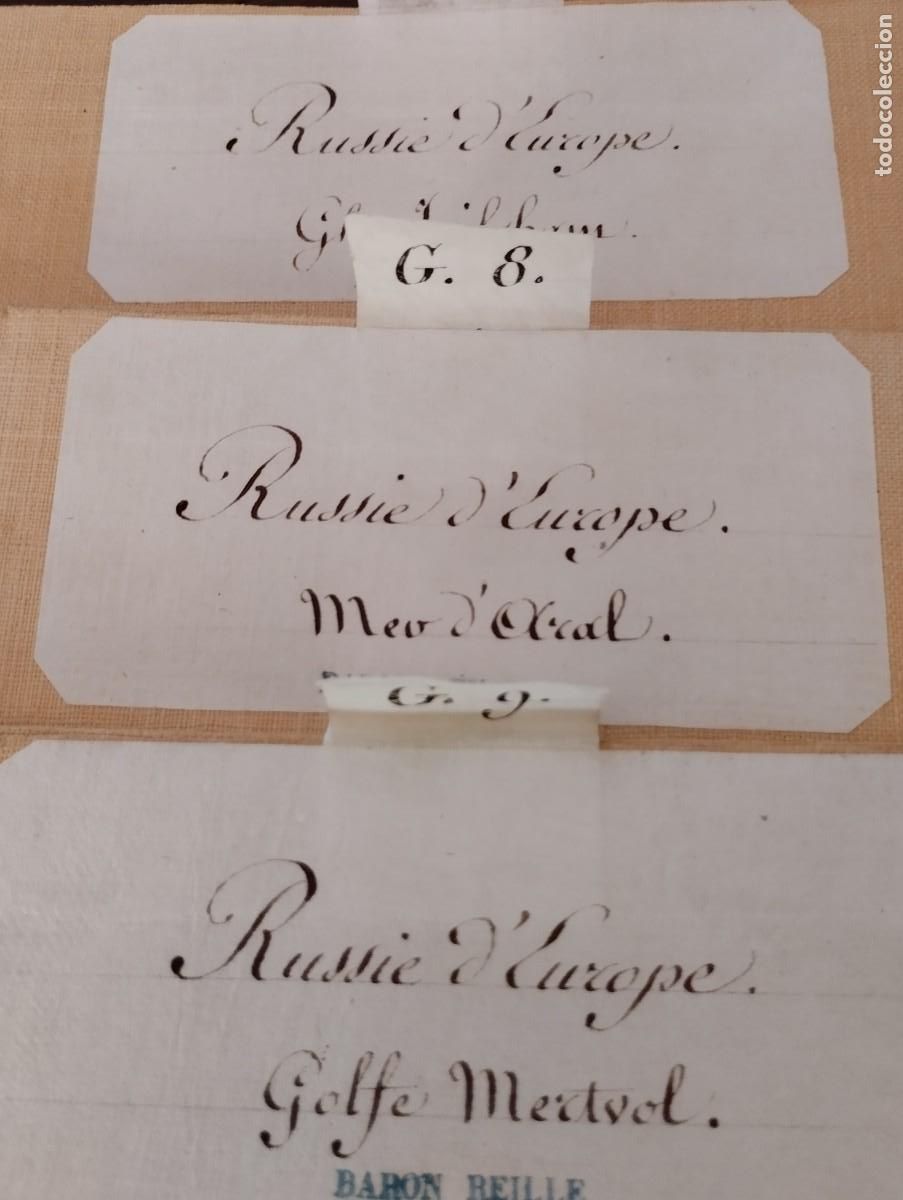 Russie d'Europe.
G. 8.
Russie d'Europe.
Mer d'Aral.
G. 9.
Russie d'Europe.
Golfe Mertvol.
BARON REILLE
todocoleccion